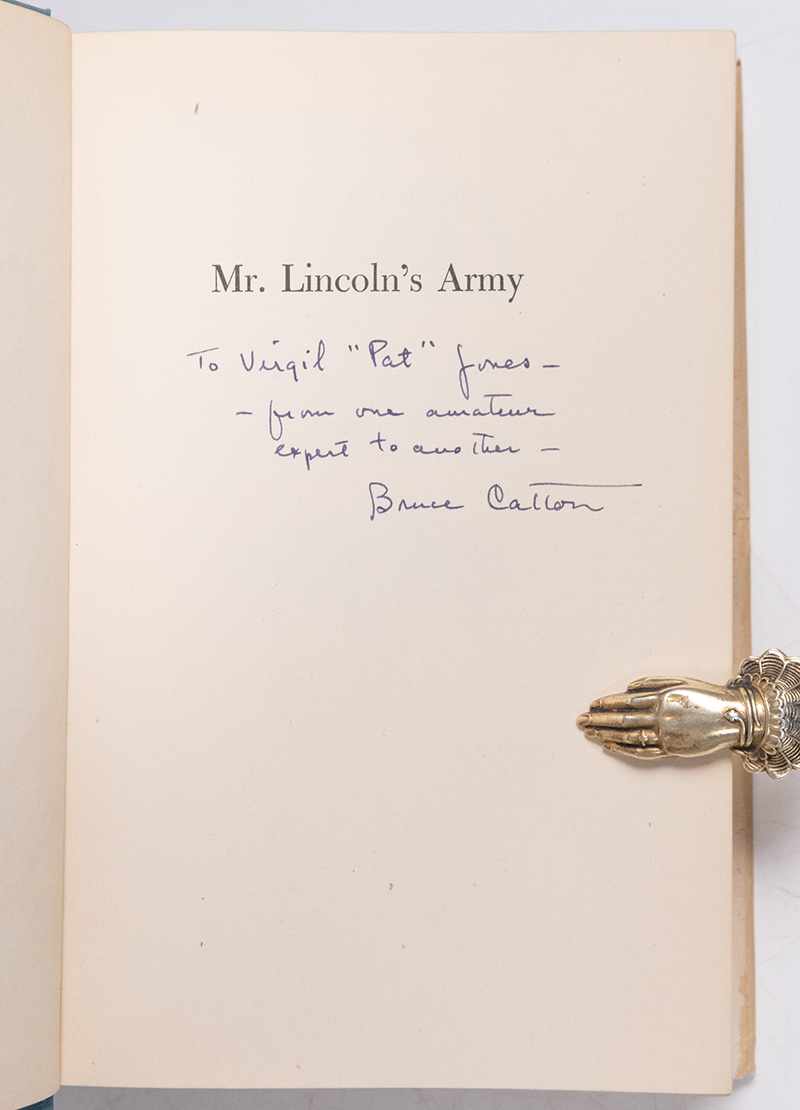 Mr. Lincoln's Army
To Virgil "Pat" Jones –
– from one amateur
expert to another –
Bruce Catton